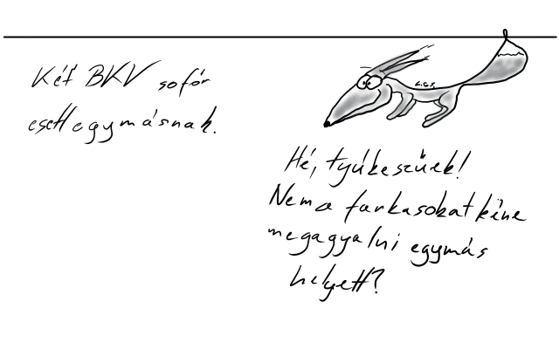 Két BKV sofőr
esett egymásnak.
Hé, tyúkeszűek!
Nem a farkasokat kéne
megagyalni egymás
helyett?